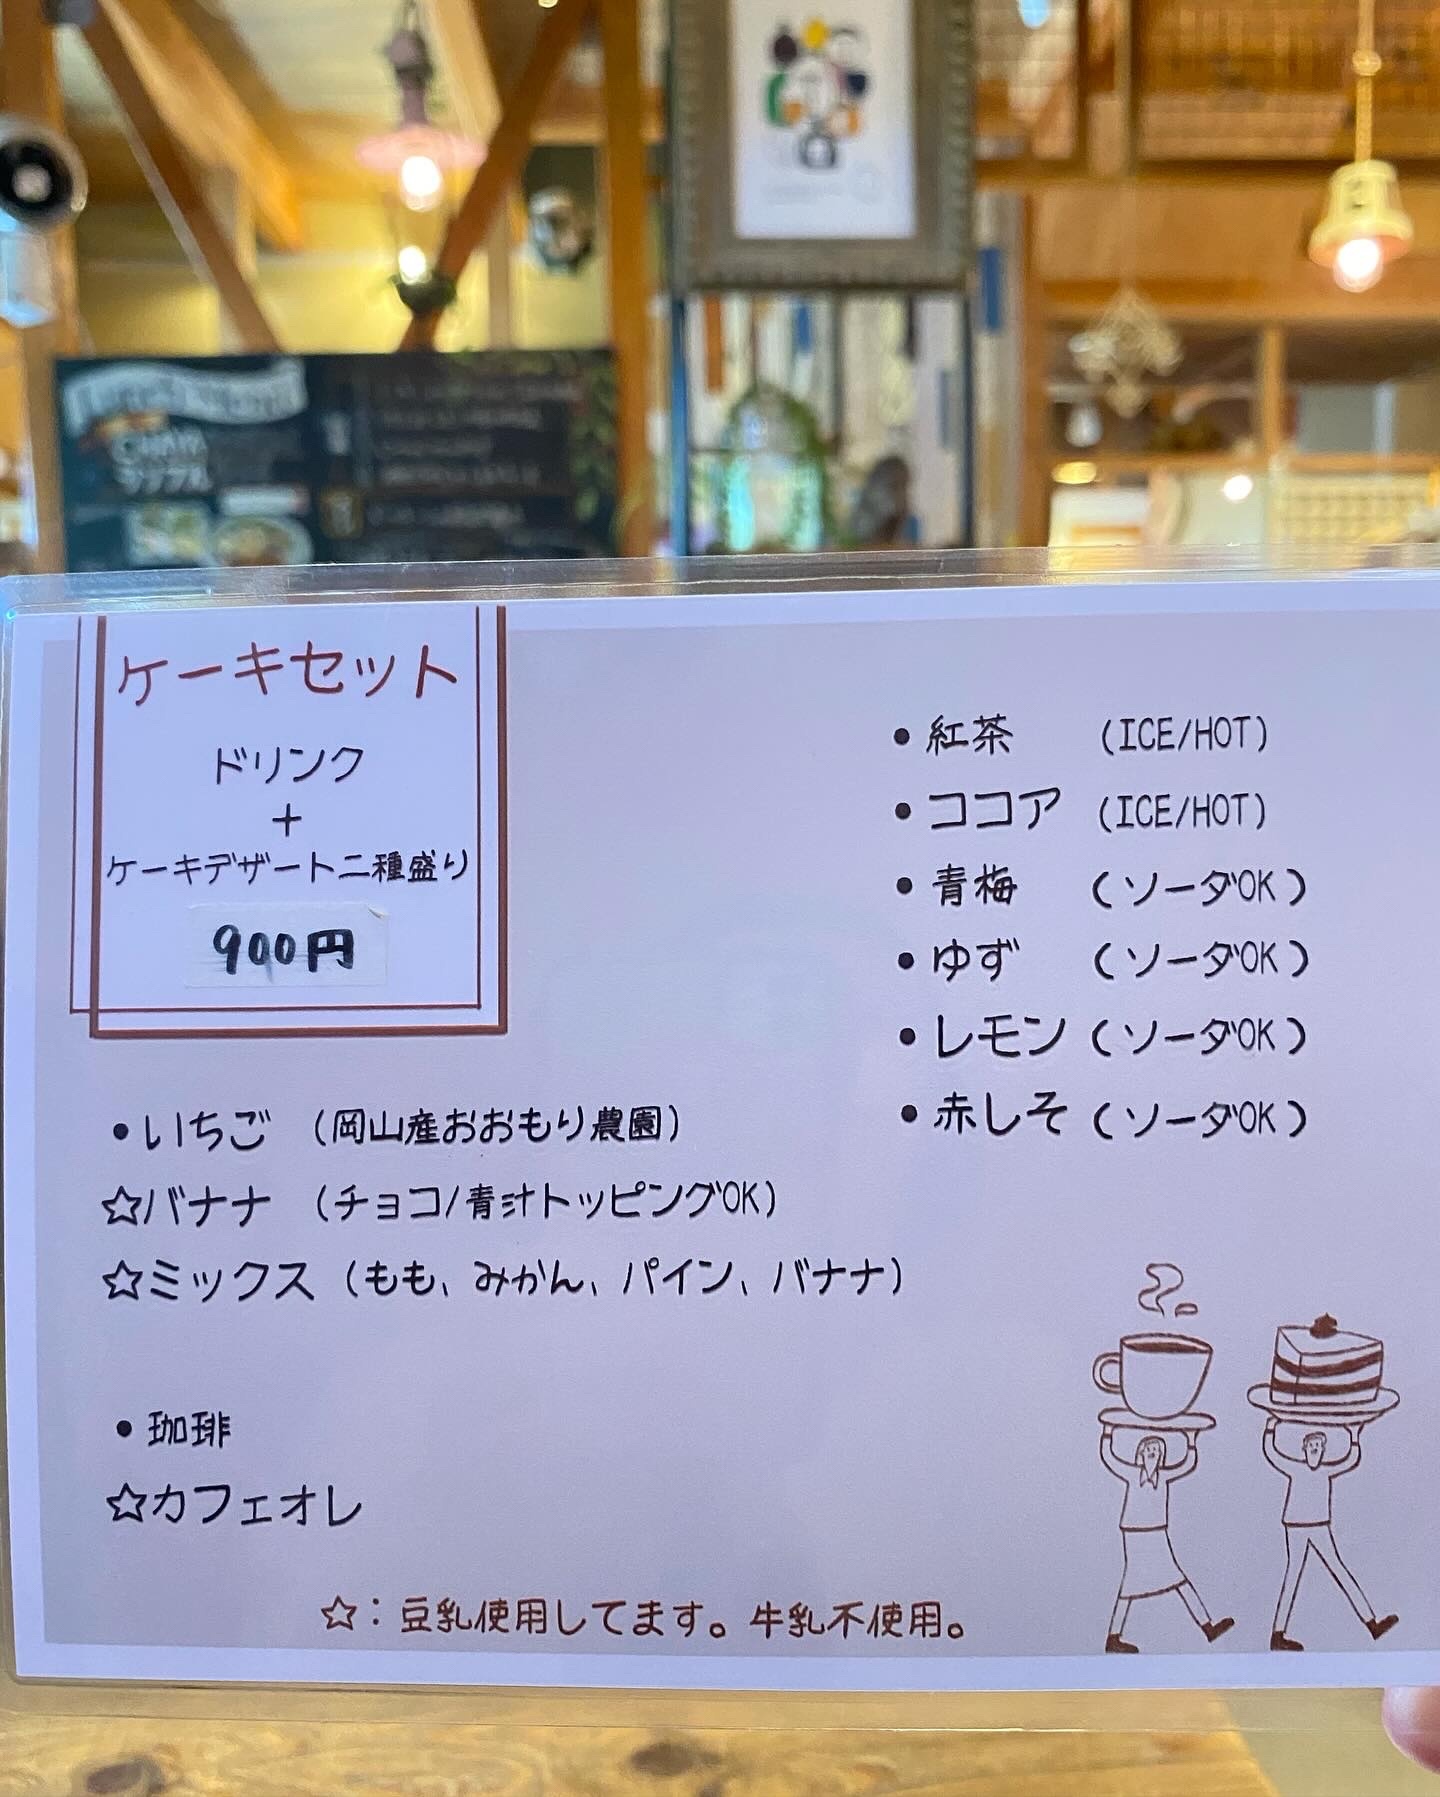 ケーキセット
ドリンク
+
ケーキデザート二種盛り
900円
・いちご (岡山産おおもり農園)
☆バナナ (チョコ/青汁トッピングOK)
☆ミックス (もも、みかん、パイン、バナナ)
・珈琲
☆カフェオレ
・紅茶 (ICE/HOT)
・ココア (ICE/HOT)
・青梅 (ソーダOK)
・ゆず (ソーダOK)
・レモン (ソーダOK)
・赤しそ (ソーダOK)
☆:豆乳使用してます。牛乳不使用。